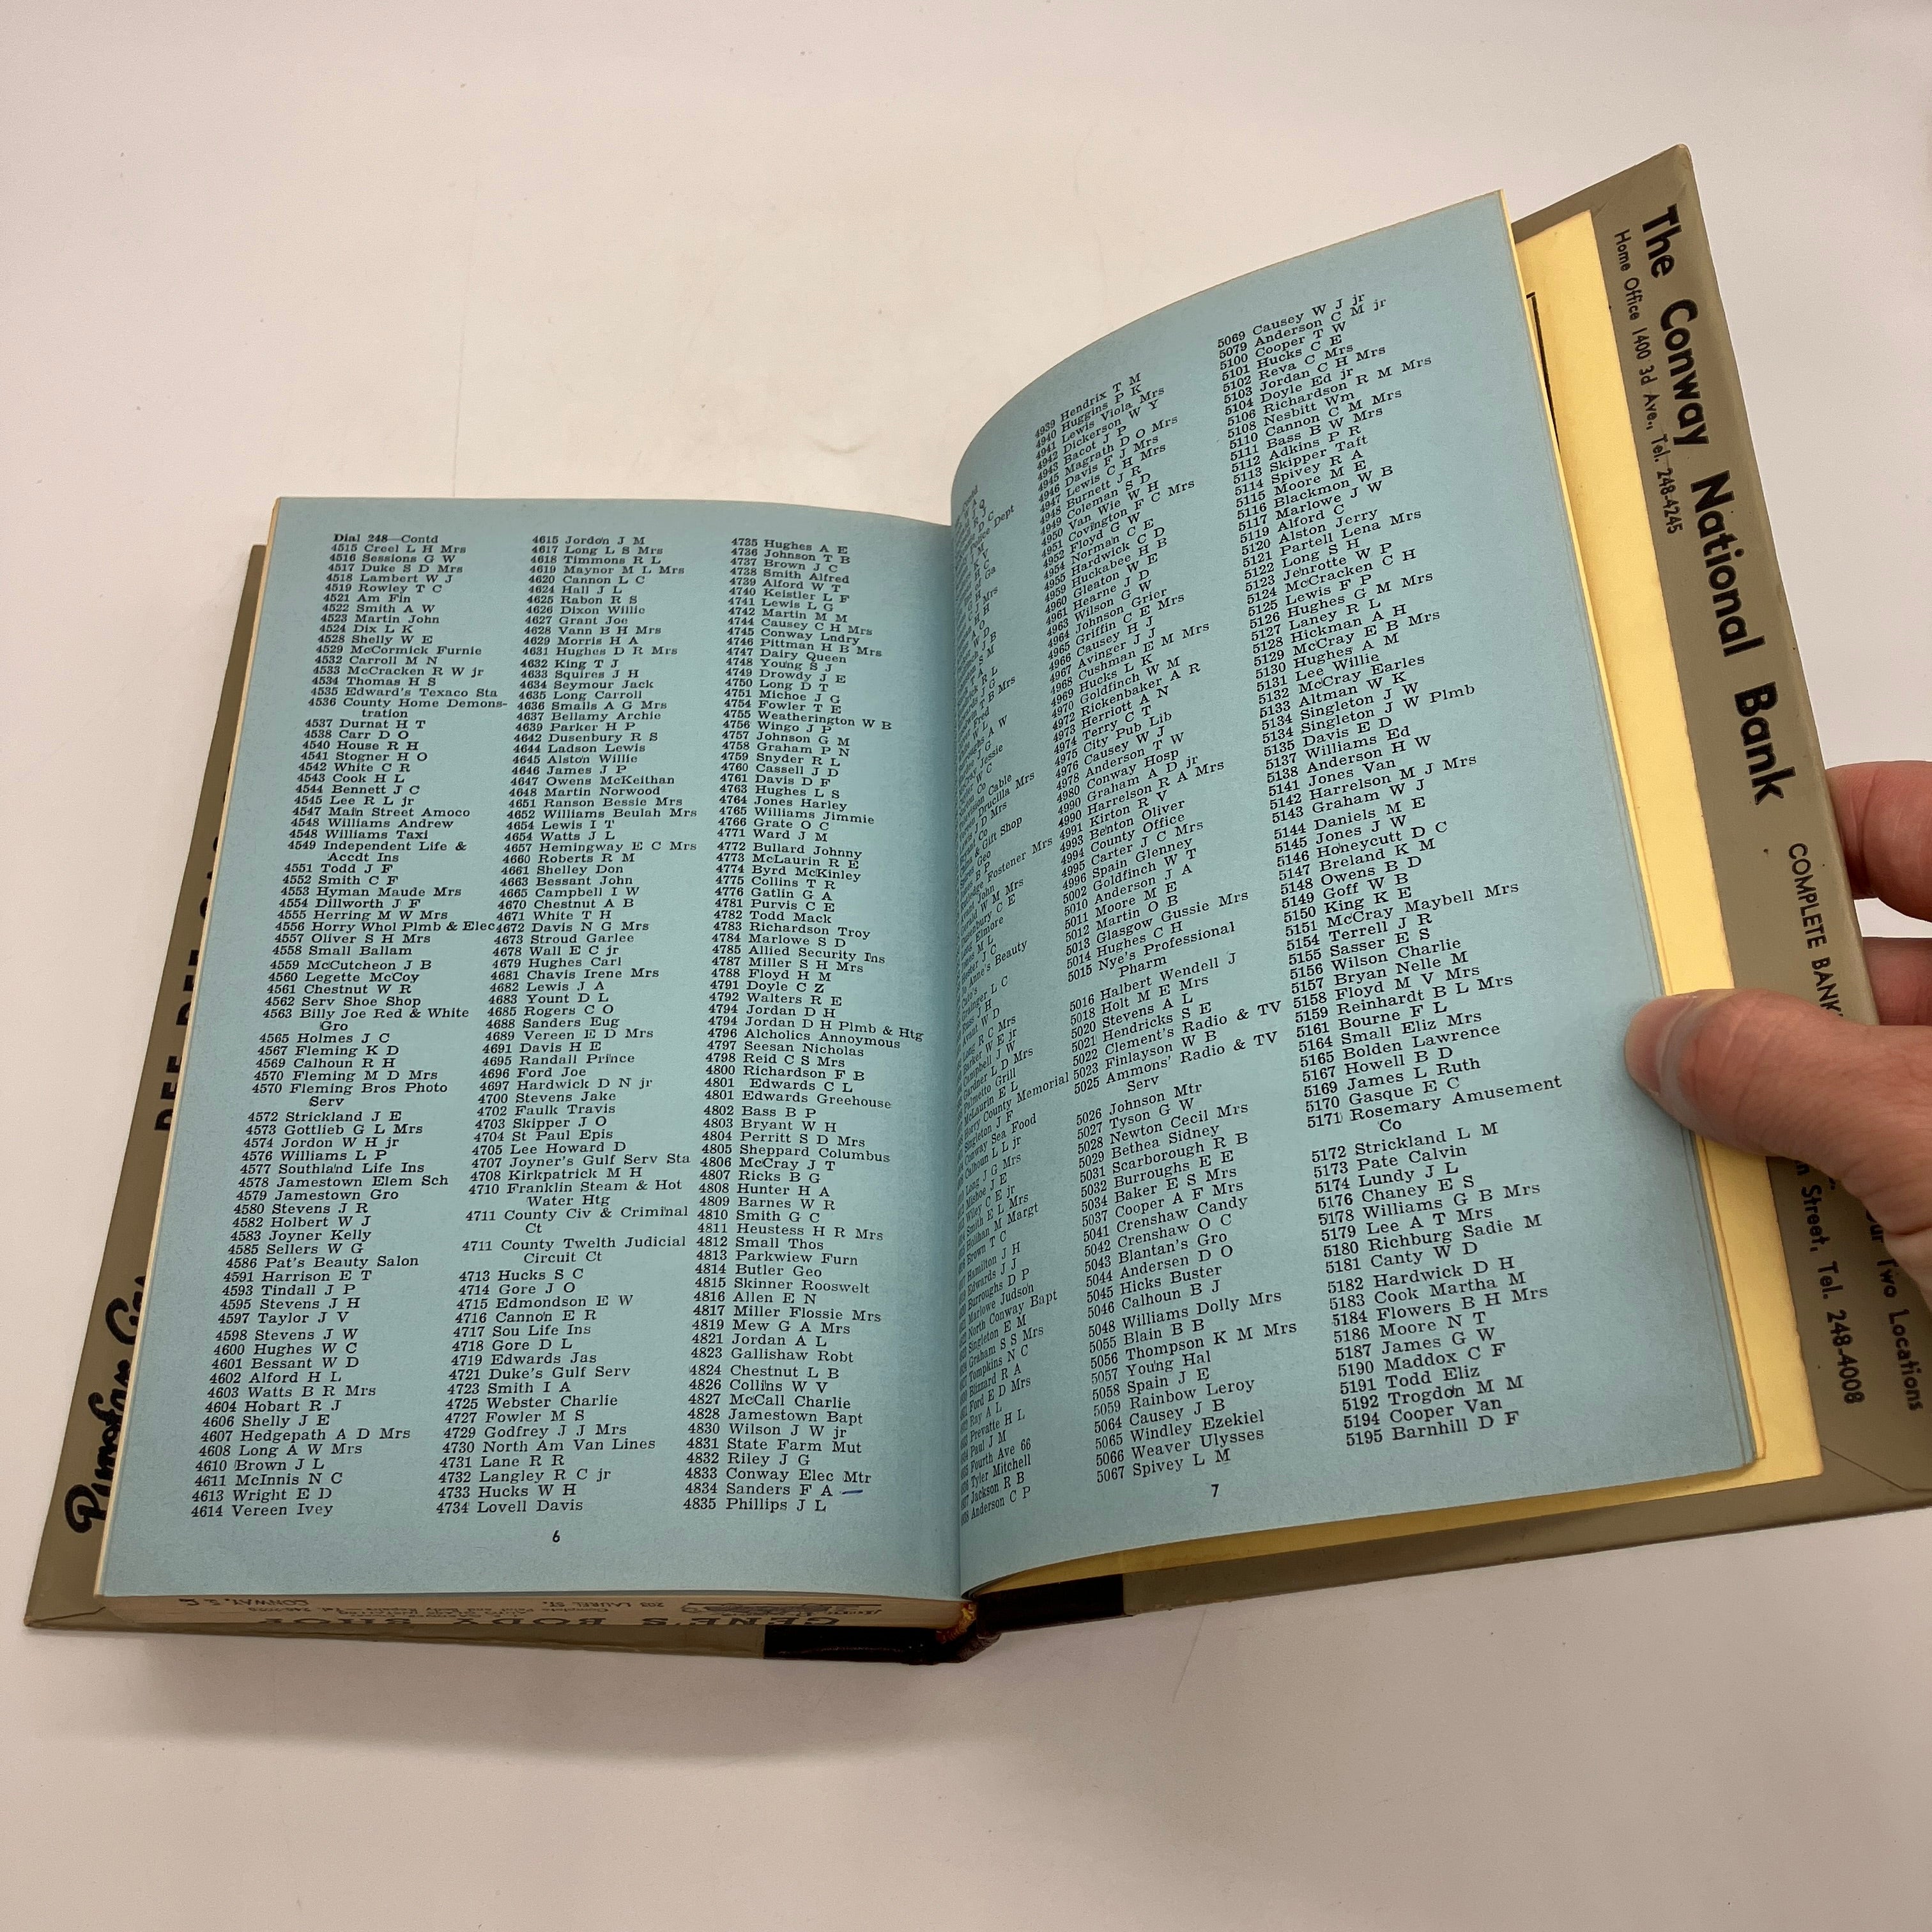 Dial 248—Contd
4515 Creel L H Mrs
4516 Sessions G W
4517 Duke S D Mrs
4518 Lambert W J
4519 Rowley T C
4521 Am Fin
4522 Smith A W
4523 Martin John
4524 Dix L K
4528 Shelly W E
4529 McCormick Furnie
4532 Carroll M N
4533 McCracken R W jr
4534 Thomas H S
4535 Edward's Texaco Sta
4536 County Home Demons-
tration
4537 Durnat H T
4538 Carr D O
4540 House R H
4541 Stogner H O
4542 White C R
4543 Cook H L
4544 Bennett J C
4545 Lee R L jr
4547 Main Street Amoco
4548 Williams Andrew
4548 Williams Taxi
4549 Independent Life &
Accdt Ins
4551 Todd J F
4552 Smith C F
4553 Hyman Maude Mrs
4554 Dillworth J F
4555 Herring M W Mrs
4556 Horry Whol Plmb & Elec
4557 Oliver S H Mrs
4558 Small Ballam
4559 McCutcheon J B
4560 Legette McCoy
4561 Chestnut W R
4562 Serv Shoe Shop
4563 Billy Joe Red & White
Gro
4565 Holmes J C
4567 Fleming K D
4569 Calhoun R H
4570 Fleming M D Mrs
4570 Fleming Bros Photo
Serv
4572 Strickland J E
4573 Gottlieb G L Mrs
4574 Jordon W H jr
4576 Williams L P
4577 Southland Life Ins
4578 Jamestown Elem Sch
4579 Jamestown Gro
4580 Stevens J R
4582 Holbert W J
4583 Joyner Kelly
4585 Sellers W G
4586 Pat's Beauty Salon
4591 Harrison E T
4593 Tindall J P
4595 Stevens J H
4597 Taylor J V
4598 Stevens J W
4600 Hughes W C
4601 Bessant W D
4602 Alford H L
4603 Watts B R Mrs
4604 Hobart R J
4606 Shelly J E
4607 Hedgepath A D Mrs
4608 Long A W Mrs
4610 Brown J L
4611 McInnis N C
4613 Wright E D
4614 Vereen Ivey
4615 Jordon J M
4617 Long L S Mrs
4618 Timmons R L
4619 Maynor M L Mrs
4620 Cannon L C
4624 Hall J L
4625 Rabon R S
4626 Dixon Willie
4627 Grant Joe
4628 Vann B H Mrs
4629 Morris H A
4631 Hughes D R Mrs
4632 King T J
4633 Squires J H
4634 Seymour Jack
4635 Long Carroll
4636 Smalls A G Mrs
4637 Bellamy Archie
4639 Parker H P
4642 Dusenbury R S
4644 Ladson Lewis
4645 Alston Willie
4646 James J P
4647 Owens McKeithan
4648 Martin Norwood
4651 Ranson Bessie Mrs
4652 Williams Beulah Mrs
4654 Lewis I T
4654 Watts J L
4657 Hemingway E C Mrs
4660 Roberts R M
4661 Shelley Don
4663 Bessant John
4665 Campbell J W
4670 Chestnut A B
4671 White T H
4672 Davis N G Mrs
4673 Stroud Garlee
4678 Wall E C jr
4679 Hughes Carl
4681 Chavis Irene Mrs
4682 Lewis J A
4683 Yount D L
4685 Rogers C O
4688 Sanders Eug
4689 Vereen E D Mrs
4691 Davis H E
4695 Randall Prince
4696 Ford Joe
4697 Hardwick D N jr
4700 Stevens Jake
4702 Faulk Travis
4703 Skipper J O
4704 St Paul Epis
4705 Lee Howard D
4707 Joyner's Gulf Serv Sta
4708 Kirkpatrick M H
4710 Franklin Steam & Hot
Water Htg
4711 County Civ & Criminal
Ct
4711 County Twelth Judicial
Circuit Ct
4713 Hucks S C
4714 Gore J O
4715 Edmondson E W
4716 Cannon E R
4717 Sou Life Ins
4718 Gore D L
4719 Edwards Jas
4721 Duke's Gulf Serv
4723 Smith I A
4725 Webster Charlie
4727 Fowler M S
4729 Godfrey J J Mrs
4730 North Am Van Lines
4731 Lane R R
4732 Langley R C jr
4733 Hucks W H
4734 Lovell Davis
4735 Hughes A E
4736 Johnson T B
4737 Brown J C
4738 Smith Alfred
4739 Alford W T
4740 Keistler L F
4741 Lewis L G
4742 Martin M M
4744 Causey C H Mrs
4745 Conway Lndry
4746 Pittman H B Mrs
4747 Dairy Queen
4748 Young S J
4749 Drowdy J E
4750 Long D T
4751 Michoe J G
4754 Fowler T E
4755 Weatherington W B
4756 Wingo J P
4757 Johnson G M
4758 Graham P N
4759 Snyder R L
4760 Cassell J D
4761 Davis D F
4763 Hughes L S
4764 Jones Harley
4765 Williams Jimmie
4766 Grate O C
4771 Ward J M
4772 Bullard Johnny
4773 McLaurin R E
4774 Byrd McKinley
4775 Collins T R
4776 Gatlin G A
4781 Purvis C E
4782 Todd Mack
4783 Richardson Troy
4784 Marlowe S D
4785 Allied Security Ins
4787 Miller S H Mrs
4788 Floyd H M
4791 Doyle C Z
4792 Walters R E
4794 Jordan D H
4794 Jordan D H Plmb & Htg
4796 Alcholics Annoymous
4797 Seesan Nicholas
4798 Reid C S Mrs
4800 Richardson F B
4801 Edwards C L
4801 Edwards Greehouse
4802 Bass B P
4803 Bryant W H
4804 Perritt S D Mrs
4805 Sheppard Columbus
4806 McCray J T
4807 Ricks B G
4808 Hunter H A
4809 Barnes W R
4810 Smith G C
4811 Heustess H R Mrs
4812 Small Thos
4813 Parkwiew Furn
4814 Butler Geo
4815 Skinner Rooswelt
4816 Allen E N
4817 Miller Flossie Mrs
4819 Mew G A Mrs
4821 Jordan A L
4823 Gallishaw Robt
4824 Chestnut L B
4826 Collins W V
4827 McCall Charlie
4828 Jamestown Bapt
4830 Wilson J W jr
4831 State Farm Mut
4832 Riley J G
4833 Conway Elec Mtr
4834 Sanders F A
4835 Phillips J L
6
4939 Hendrix T M
4940 Huggins P K
4941 Lewis Viola Mrs
4942 Dickerson W Y
4943 Bacot J P
4945 Magrath D O Mrs
4946 Davis F J Mrs
4947 Lewis C H Mrs
4948 Burnett J R
4949 Coleman S D
4950 Van Wie W H
4951 Covington F C Mrs
4952 Floyd G W
4954 Norman C E
4955 Hardwick C D
4959 Huckabee H B
4960 Gleaton W E
4961 Hearne J D
4963 Wilson G W
4964 Johnson Grier
4965 Griffin C E Mrs
4966 Causey H J
4967 Avinger J J
4968 Cushman E M Mrs
4969 Hucks L K
4970 Goldfinch W M
4972 Rickenbaker A R
4973 Herriott A N
4974 Terry C T
4975 City Pub Lib
4976 Causey W J
4978 Anderson T W
4980 Conway Hosp
4990 Graham A D jr
4990 Harrelson R A Mrs
4991 Kirton R V
4993 Benton Oliver
4994 County Office
4995 Carter J C Mrs
4996 Spain Glenney
5002 Goldfinch W T
5010 Anderson J A
5011 Moore M E
5012 Martin O B
5013 Glasgow Gussie Mrs
5014 Hughes C H
5015 Nye's Professional
Pharm
5016 Halbert Wendell J
5018 Holt M E Mrs
5020 Stevens A L
5021 Hendricks S E
5022 Clement's Radio & TV
5023 Finlayson W B
5025 Ammons' Radio & TV
Serv
5026 Johnson Mtr
5027 Tyson G W
5028 Newton Cecil Mrs
5029 Bethea Sidney
5031 Scarborough R B
5032 Burroughs E E
5034 Baker E S Mrs
5037 Cooper A F Mrs
5041 Crenshaw Candy
5042 Crenshaw O C
5043 Blantan's Gro
5044 Andersen D O
5045 Hicks Buster
5046 Calhoun B J
5048 Williams Dolly Mrs
5055 Blain B B
5056 Thompson K M Mrs
5057 Young Hal
5058 Spain J E
5059 Rainbow Leroy
5064 Causey J B
5065 Windley Ezekiel
5066 Weaver Ulysses
5067 Spivey L M
5069 Causey W J jr
5079 Anderson C M jr
5100 Cooper T W
5101 Hucks C E
5102 Reva C Mrs
5103 Jordan C H Mrs
5104 Doyle Ed jr
5106 Richardson R M Mrs
5108 Nesbitt Wm
5110 Cannon C M Mrs
5111 Bass B W Mrs
5112 Adkins P R
5113 Skipper Taft
5114 Spivey R A
5115 Moore M E
5116 Blackmon W B
5117 Marlowe J W
5119 Alford C
5120 Alston Jerry
5121 Partell Lena Mrs
5122 Long S H
5123 Jenrotte W P
5124 McCracken C H
5125 Lewis F P
5126 Hughes G M Mrs
5127 Laney R L
5128 Hickman A H
5129 McCray E B Mrs
5130 Hughes A M
5131 Lee Willie
5132 McCray Earles
5133 Altman W K
5134 Singleton J W
5134 Singleton J W Plmb
5135 Davis E D
5137 Williams Ed
5138 Anderson H W
5141 Jones Van
5142 Harrelson M J Mrs
5143 Graham W J
5144 Daniels M E
5145 Jones J W
5146 Honeycutt D C
5147 Breland K M
5148 Owens B D
5149 Goff W B
5150 King K E
5151 McCray Maybell Mrs
5154 Terrell J R
5155 Sasser E S
5156 Wilson Charlie
5157 Bryan Nelle M
5158 Floyd M V Mrs
5159 Reinhardt B L Mrs
5161 Bourne F L
5164 Small Eliz Mrs
5165 Bolden Lawrence
5167 Howell B D
5169 James L Ruth
5170 Gasque E C
5171 Rosemary Amusement
Co
5172 Strickland L M
5173 Pate Calvin
5174 Lundy J L
5176 Chaney E S
5178 Williams G B Mrs
5179 Lee A T Mrs
5180 Richburg Sadie M
5181 Canty W D
5182 Hardwick D H
5183 Cook Martha M
5184 Flowers B H Mrs
5186 Moore N T
5187 James G W
5190 Maddox C F
5191 Todd Eliz
5192 Trogdon M M
5194 Cooper Van
5195 Barnhill D F
7
The Conway National Bank
Home Office 1400 3d Ave., Tel. 248-4245
COMPLETE BANK
Two Locations
Street, Tel. 248-4008
GENE'S BODY SHOP
203 LAUREL ST.